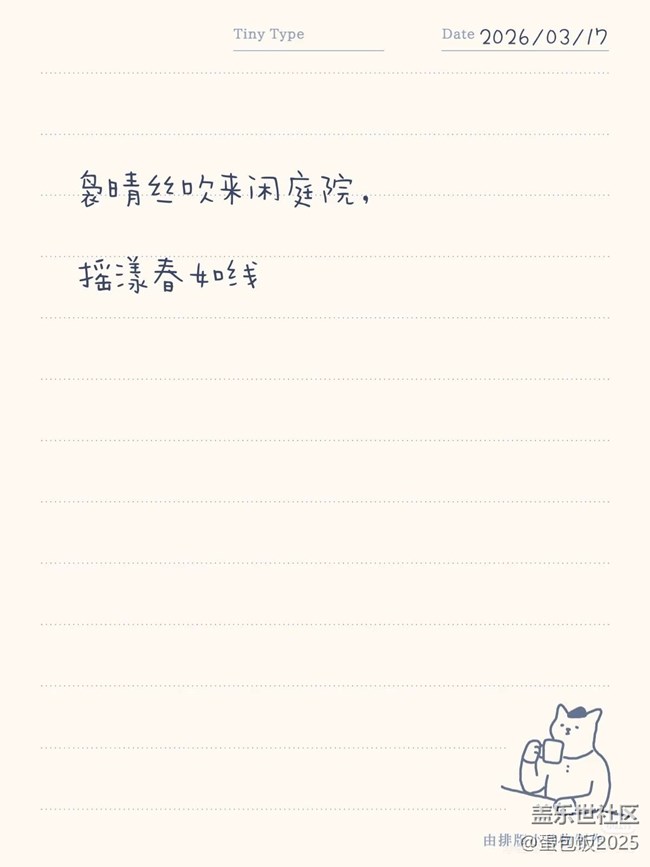 Tiny Type
Date 2026/03/17
袅晴丝吹来闲庭院，
摇漾春如线
盖乐世社区
由排版
@蛋包饭2025